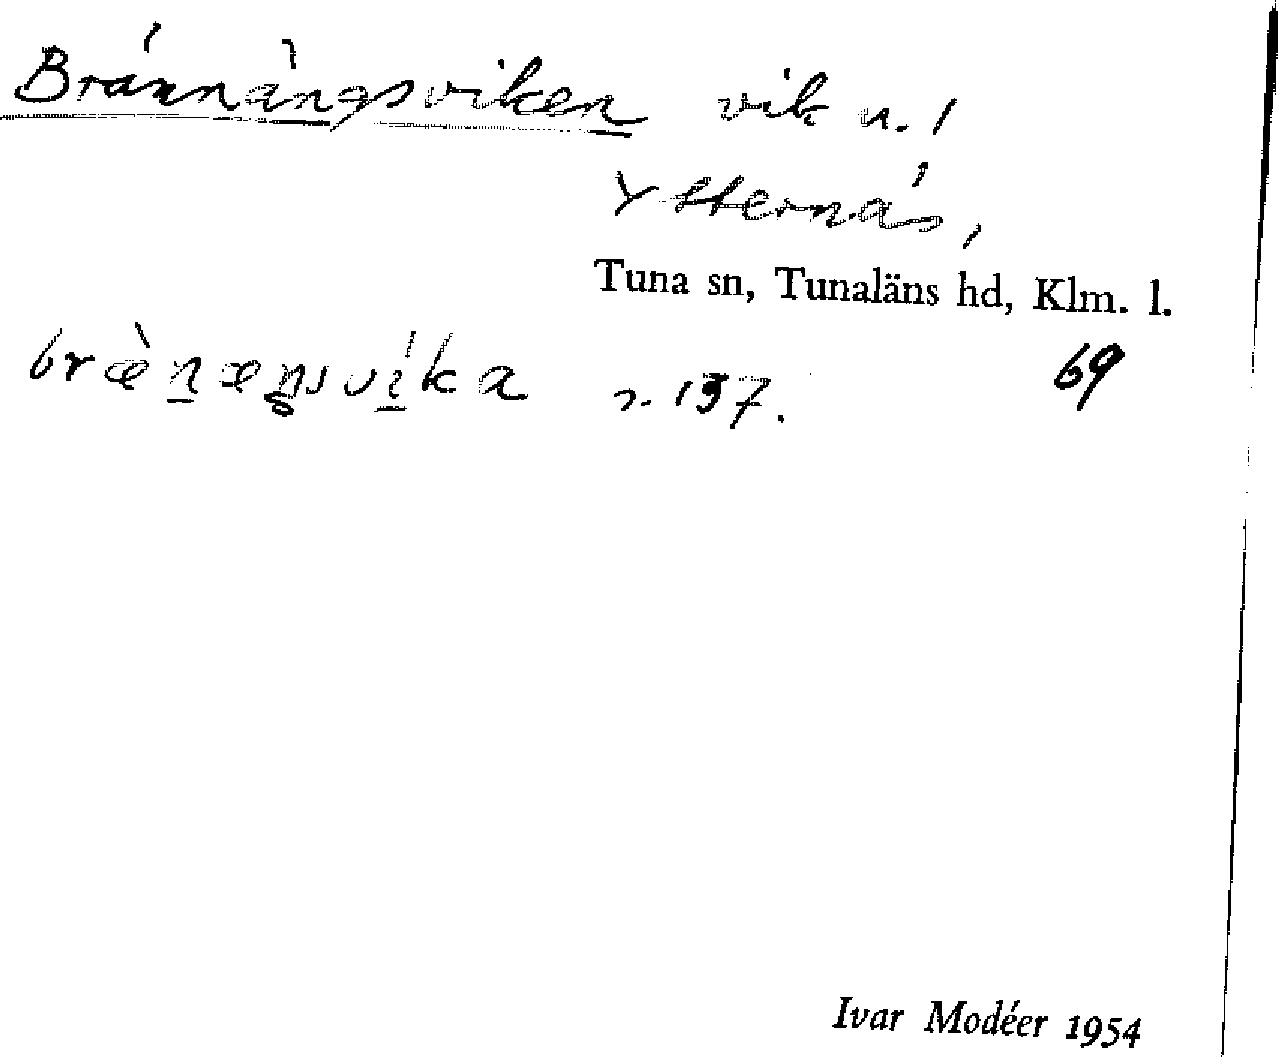 Brännängsviken vik u. /
Ytternäs,
Tuna sn, Tunaläns hd, Klm. l.
bræ̀n̲æŋsví̲ka s. 137. 69
Ivar Modéer 1954